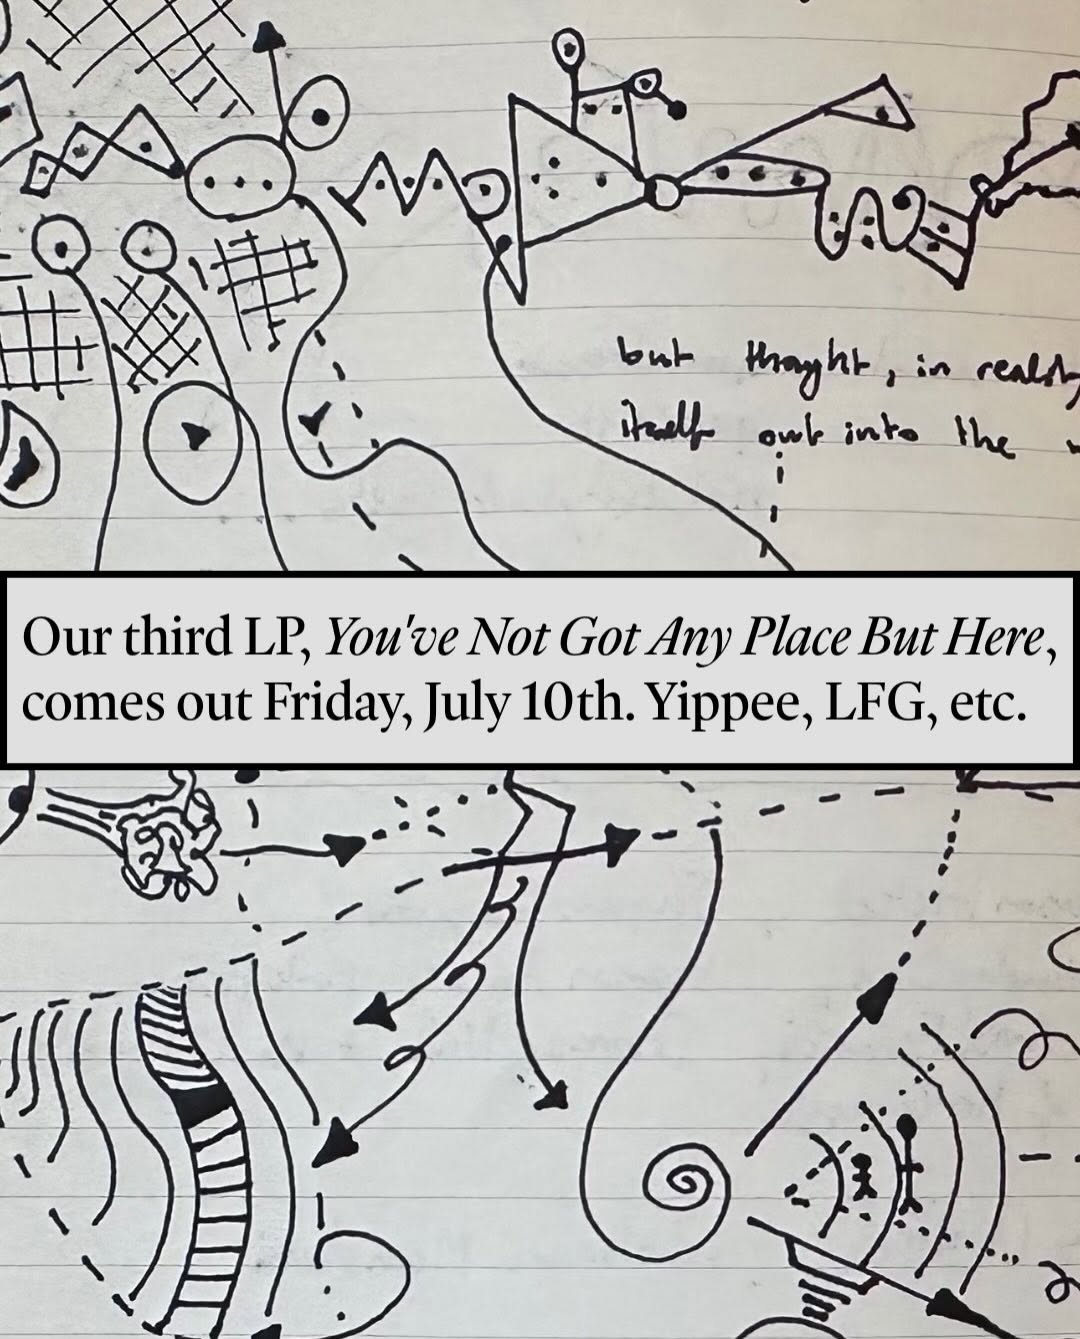 but thought, in reality
itself out into the
Our third LP, You've Not Got Any Place But Here,
comes out Friday, July 10th. Yippee, LFG, etc.